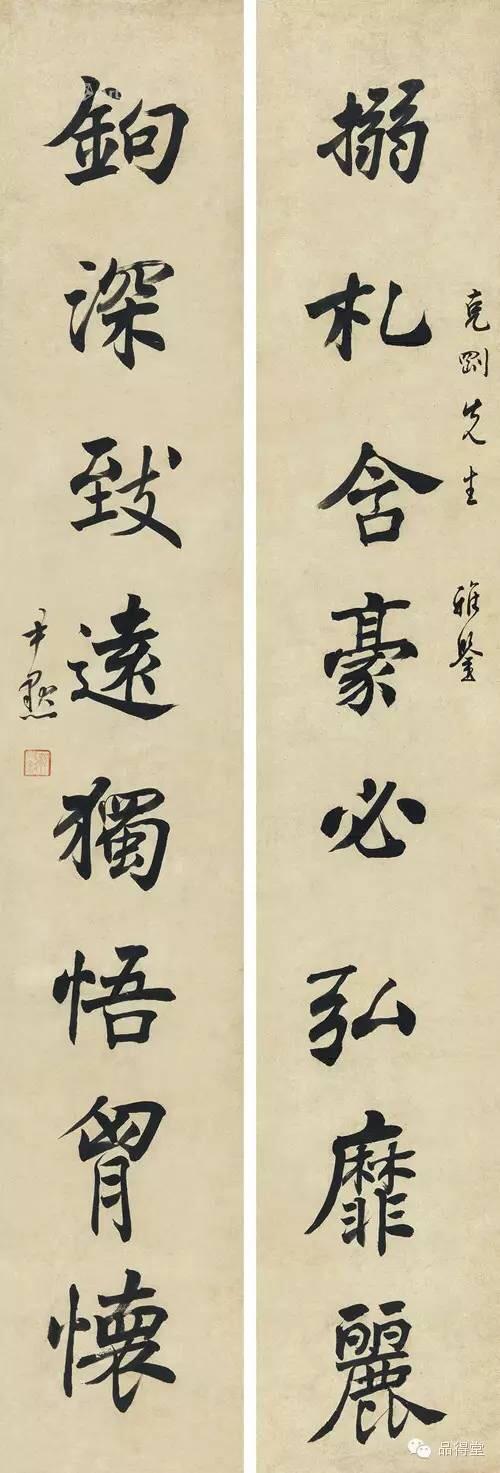 克剛先生 雅鑒
搦札含豪必弘靡麗
鉤深致遠獨悟胷懷
尹默
品得堂